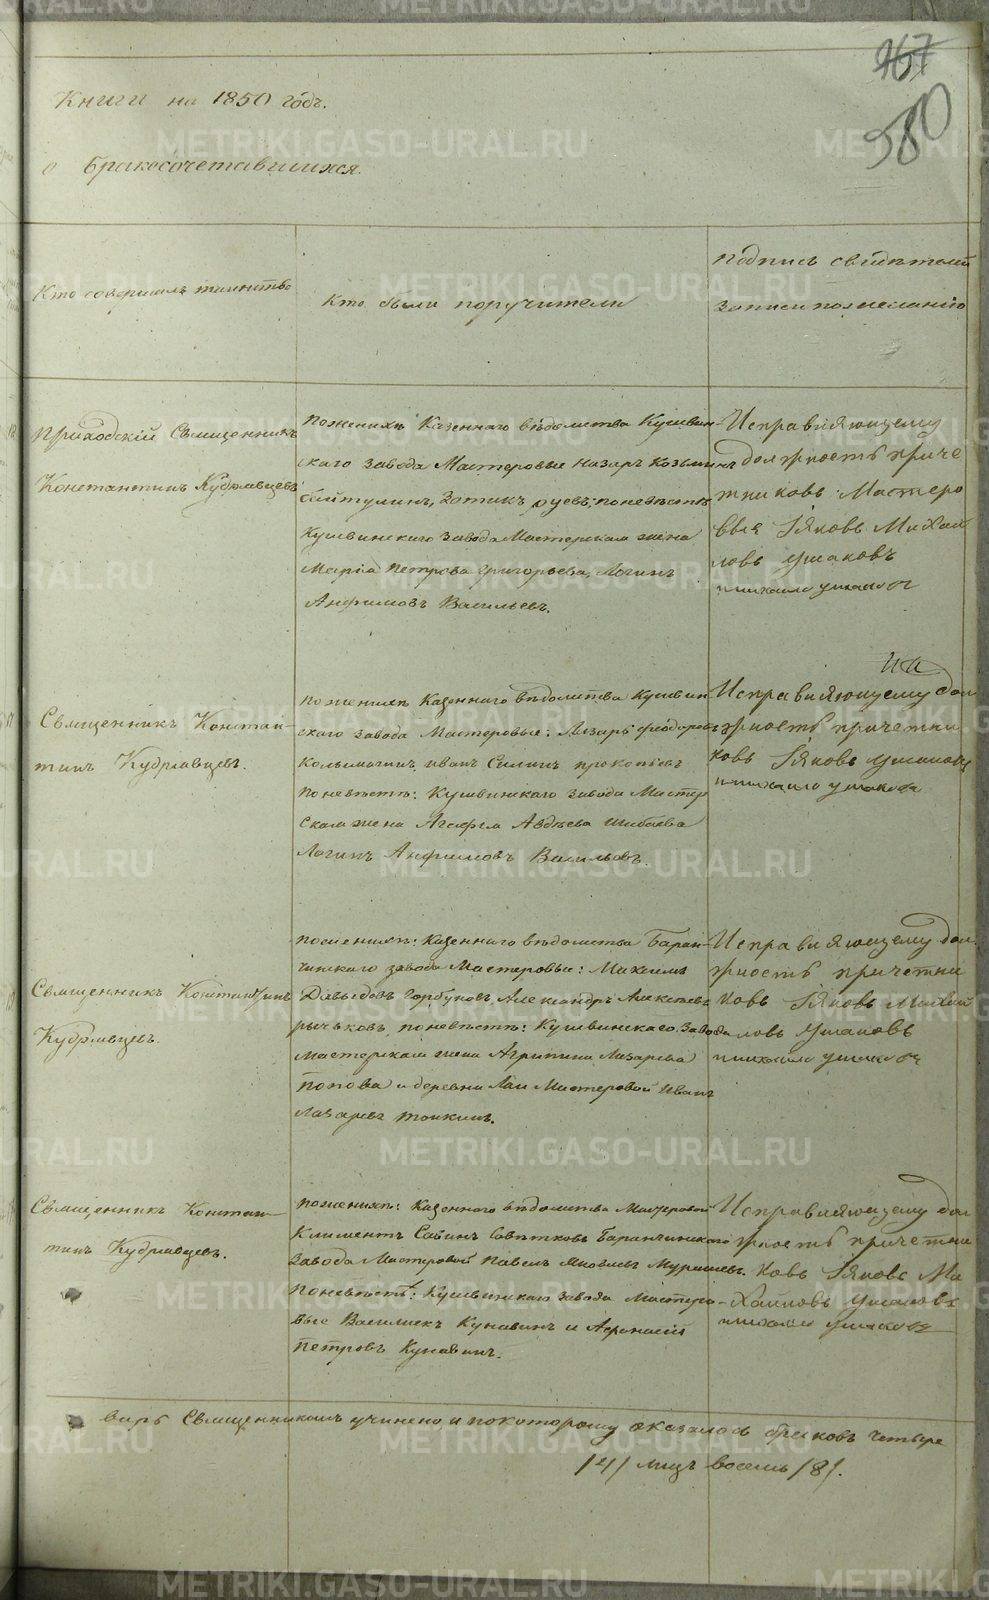 767
580
Книги на 1850 годъ.
о бракосочетавшихся.
Кто совершалъ таинство
Кто были поручители
подпись свидѣтелей
записи по желанію
Приходскій Священникъ
Константинъ Кудрявцевъ
по женихѣ Казеннаго вѣдомства Кушвин
скаго завода Мастеровые Назаръ Козьминъ
по невѣстѣ
Кушвинскаго завода Мастерская жена
Марія Петрова Григорьева, Логинъ
Анфимовъ Васильевъ.
Исправляющему
должность приче
тниковъ Мастеро
вые Іяковъ Михаи
ловъ Ушаковъ
Михаило Ушаковъ
Священникъ Констан-
тинъ Кудрявцевъ.
по женихѣ Казеннаго вѣдомства Кушвин
скаго завода Мастеровые: Лазарь Федоровъ
Колымагинъ, иванъ Силинъ прокопьевъ
по невѣстѣ: Кушвинскаго завода Мастер
ская жена Агафья Авдѣева Шибаева
Логинъ Анфимовъ Васильевъ.
Исправляющему дол
жность причетни
ковъ Іяковъ Ушаковъ
Михаило Ушаковъ
Священникъ Константинъ
Кудрявцевъ.
по женихѣ: Казеннаго вѣдомства Баран-
чинскаго завода Мастеровые: Максимъ
Давыдовъ Горбуновъ, Александръ Алексѣевъ
рычьковъ, по невѣстѣ: Кушвинскаго завода
Мастерская жена Агрипина Лазарева
Попова и деревни Лаи Мастеровой Иванъ
Лазаревъ Тонкинъ.
Исправляющему дол
жность причетни
ковъ Іяковъ Михаи
ловъ Ушаковъ
Михаило Ушаковъ
Священникъ Констан-
тинъ Кудрявцевъ.
по женихѣ: Казеннаго вѣдомства Мастеровой
Климентъ Савинъ Совѣтковъ Баранчинскаго
завода Мастеровой Павелъ Яковлевъ
По невѣстѣ: Кушвинскаго завода Мастеро-
вые Василиекъ Кунавинъ и Афонасій
Петровъ Кунавинъ.
Исправляющему дол
жность причетни
ковъ Іяковъ Ми
хайловъ Ушаковъ
Михаило Ушаковъ
варѣ Священникомъ учинено, и по которому оказалось браковъ четыре
/4/ лицъ восемь /8/.